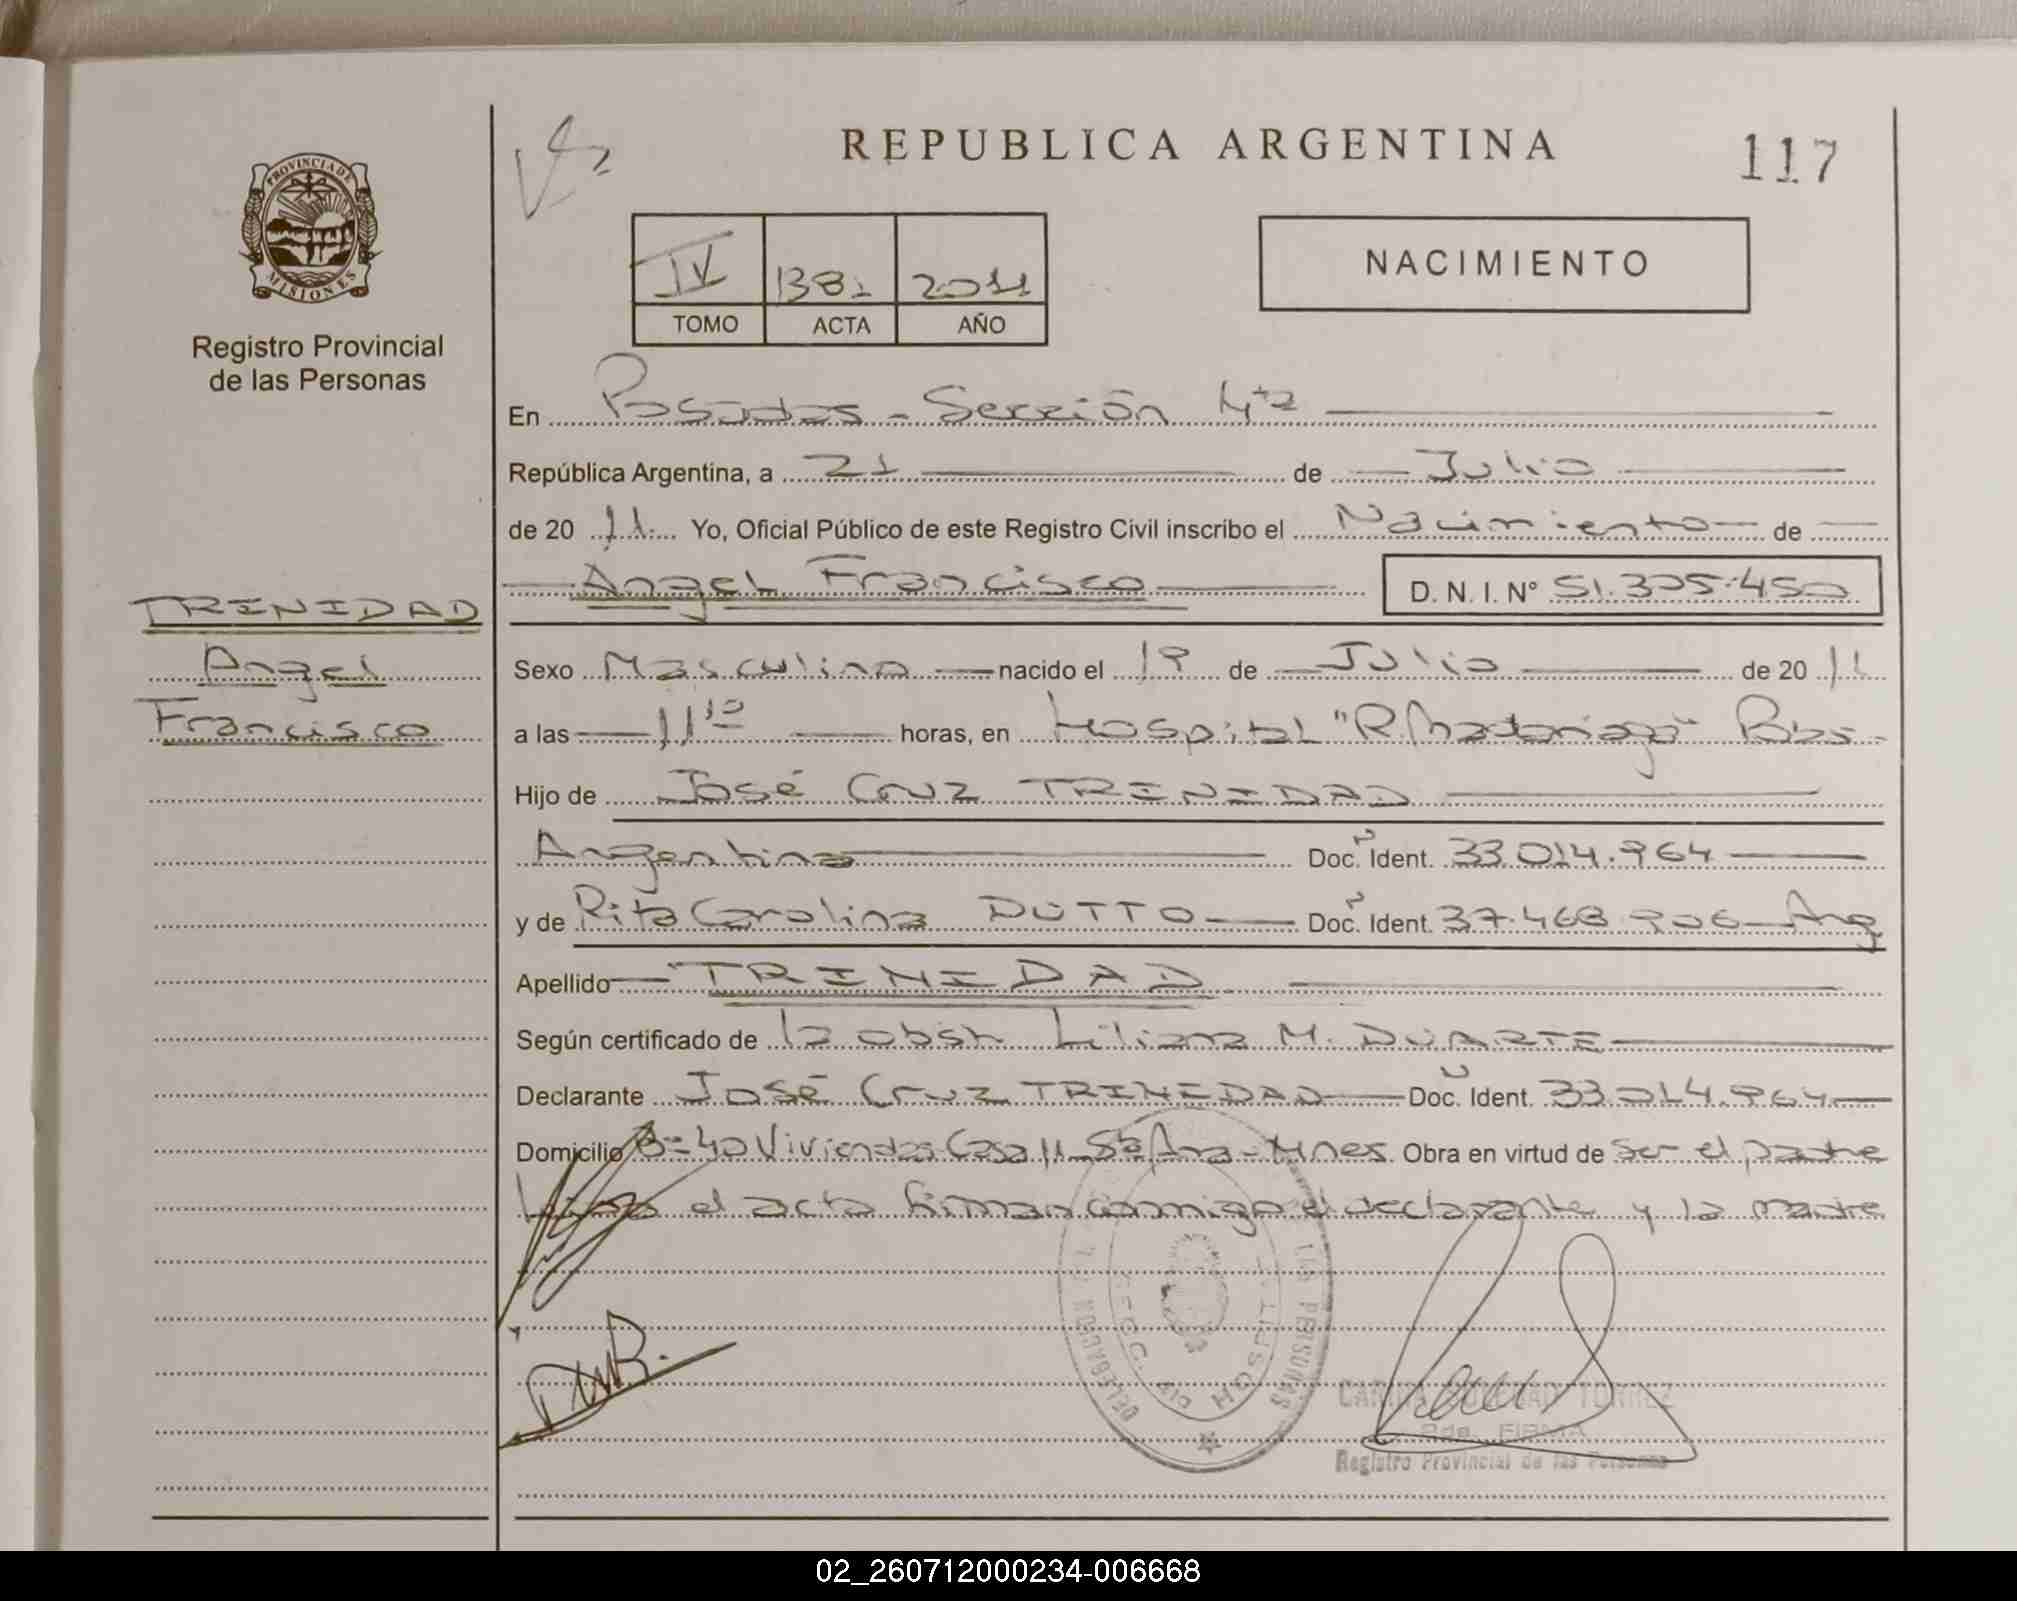 REPUBLICA ARGENTINA
117
PROVINCIA DE
MISIONES
Registro Provincial
de las Personas
IV 1381 2011
TOMO ACTA AÑO
NACIMIENTO
En Posadas - Sección 4ta
República Argentina, a 21 de Julio
de 20 11 Yo, Oficial Público de este Registro Civil inscribo el Nacimiento de
Angel Francisco D. N. I. Nº 51.325.450
TRINIDAD
Angel
Francisco
Sexo Masculino nacido el 19 de Julio de 20 11
a las 11 10 horas, en Hospital "R. Madariaga" Pdas.
Hijo de José Cruz TRINIDAD
Argentino Doc. Ident. 33.014.964
y de Rita Carolina DUTTO Doc. Ident. 37.468.906 Arg
Apellido TRINIDAD
Según certificado de la obst. Liliana M. DUARTE
Declarante José Cruz TRINIDAD Doc. Ident. 33.014.964
Domicilio Bº 40 Viviendas Casa 11 Sta Ana - Mnes. Obra en virtud de ser el padre
el acta firman conmigo el declarante y la madre
DELEGACION
LAS PERSONAS
HOSPIT
CARINA SOLEDAD TORREZ
FIRMA
Registro Provincial de las Personas
02_260712000234-006668